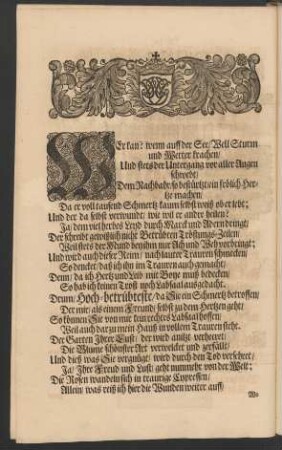 WEr kan? wenn auff der See/ Well Sturm
und Wetter krachen/
Und stets der Untergang vor aller Augen
schwebt;
Dem Nachbahr/ so bestürtzt/ ein frölich Her-
tze machen/
Da er voll tausend Schmertz kaum selbst weiß ob er lebt;
Und der da selbst verwundt; wie wil er andre heilen?
Ja/ dem viel herbes Leyd durch Marck und Adern dringt/
Der schreibt gewißlich nicht Betrübten Tröstungs-Zeilen/
Weil stets der Mund bey ihm nur Ach und Weh vorbringt;
Und wird auch dieser Reim/ nach lauter Trauren schmecken/
So dencket/ daß ich ihn im Trauren auch gemacht;
Denn/ da ich Hertz und Leib mit Boye muß bedecken/
So hab ich keinen Trost noch Labsaal ausgedacht.
Drum: Hoch-betrübteste/ da Sie ein Schmertz betroffen/
Der mir/ als einem Freund/ selbst zu dem Hertzen geht/
So können Sie von mir kein rechtes Labsaal hoffen/
Weil auch dazu mein Hauß in vollem Trauren steht.
Der Garten Ihrer Lust: der wird anitzt verheeret;
Die Blume schönster Art verwelcket und zerfällt/
Und dieß was Sie vergnügt/ wird durch den Tod versehret/
Ja/ Ihre Freud und Lust: geht nunmehr von der Welt;
Die Rosen wandeln sich in traurige Cypressen/
Allein/ was reitz ich hier die Wunden weiter auf/